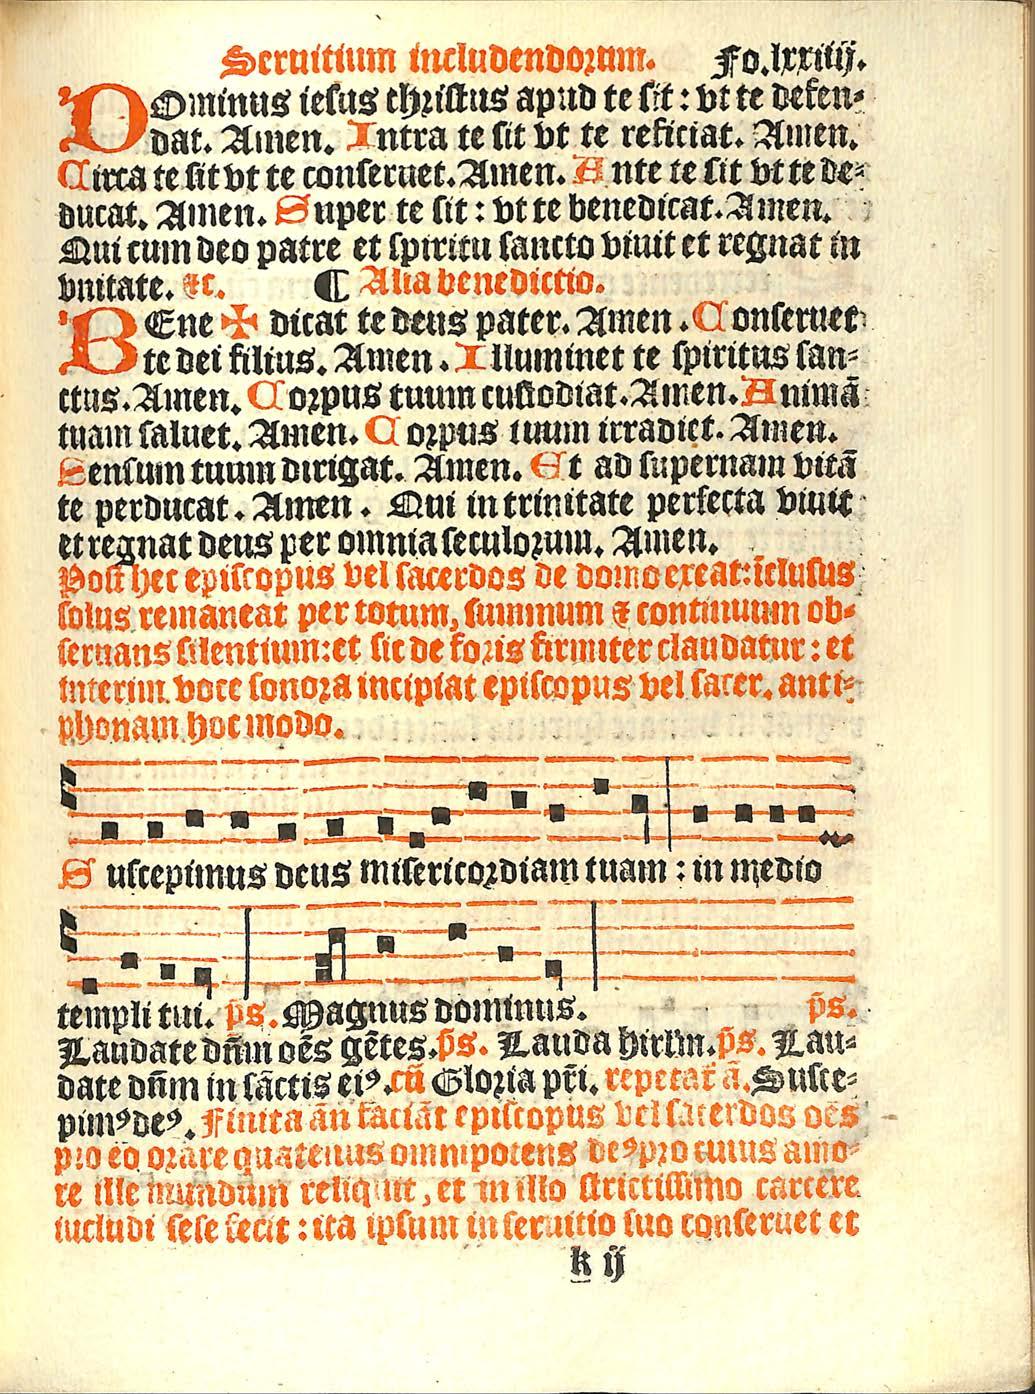 Seruitium includendorum. Fo.lxxiiij.
DOminus iesus christus apud te sit : vt te defen-
dat. Amen. Intra te sit vt te reficiat. Amen.
Circa te sit vt te conseruet. Amen. Ante te sit vt te de-
ducat. Amen. Super te sit : vt te benedicat. Amen.
Qui cum deo patre et spiritu sancto viuit et regnat in
vnitate. &c. ¶ Alia benedictio.
BEne ✠ dicat te deus pater. Amen. Conseruet
te dei filius. Amen. Illuminet te spiritus san-
ctus. Amen. Corpus tuum custodiat. Amen. Animā
tuam saluet. Amen. Corpus tuum irradiet. Amen.
Sensum tuum dirigat. Amen. Et ad supernam vitā
te perducat. Amen. Qui in trinitate perfecta viuit
et regnat deus per omnia seculorum. Amen.
Post hec episcopus vel sacerdos de domo exeat: īclusus
solus remaneat per totum, summum & continuum ob-
seruans silentium: et sic de foris firmiter claudatur : et
interim voce sonora incipiat episcopus vel sacer. anti-
phonam hoc modo.
Suscepimus deus misericordiam tuam : in medio
templi tui. p̄s. Magnus dominus. p̄s.
Laudate dn̄m oēs gētes. p̄s. Lauda hirlm̄. p̄s. Lau-
date dn̄m in sāctis eiꝰ. cū Gloria pr̄i. repetat̄ ā. Susce-
pimꝰ deꝰ. Finita an̄ faciāt episcopus vel sacerdos oēs
pro eo orare quatenus omnipotens deꝰ pro cuius amo-
re ille mundum reliquit, et in illo strictissimo carcere
includi sese fecit : ita ipsum in seruitio suo conseruet et
k ij